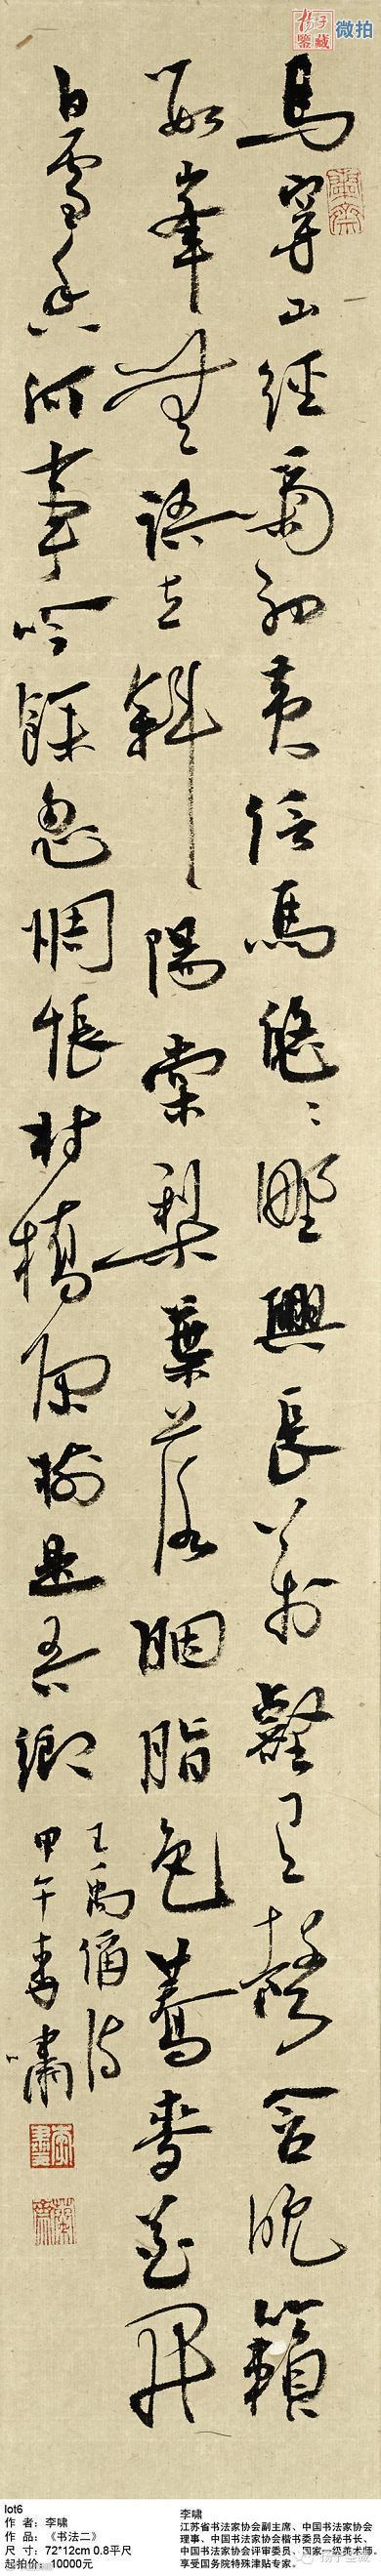 馬穿山徑菊初黃信馬悠〻野興長萬壑有聲含晚籟
數峯無語立斜陽棠梨葉落胭脂色蕎麥花開
白雪香何事吟餘忽惆悵村橋原樹是吾鄉
王禹偁詩
甲午李嘯
揚子鑒藏
微拍
lot6
作 者：李啸
作 品：《书法二》
尺 寸：72*12cm 0.8平尺
起拍价：10000元
李啸
江苏省书法家协会副主席、中国书法家协会
理事、中国书法家协会楷书委员会秘书长、
中国书法家协会评审委员、国家一级美术师。
享受国务院特殊津贴专家。